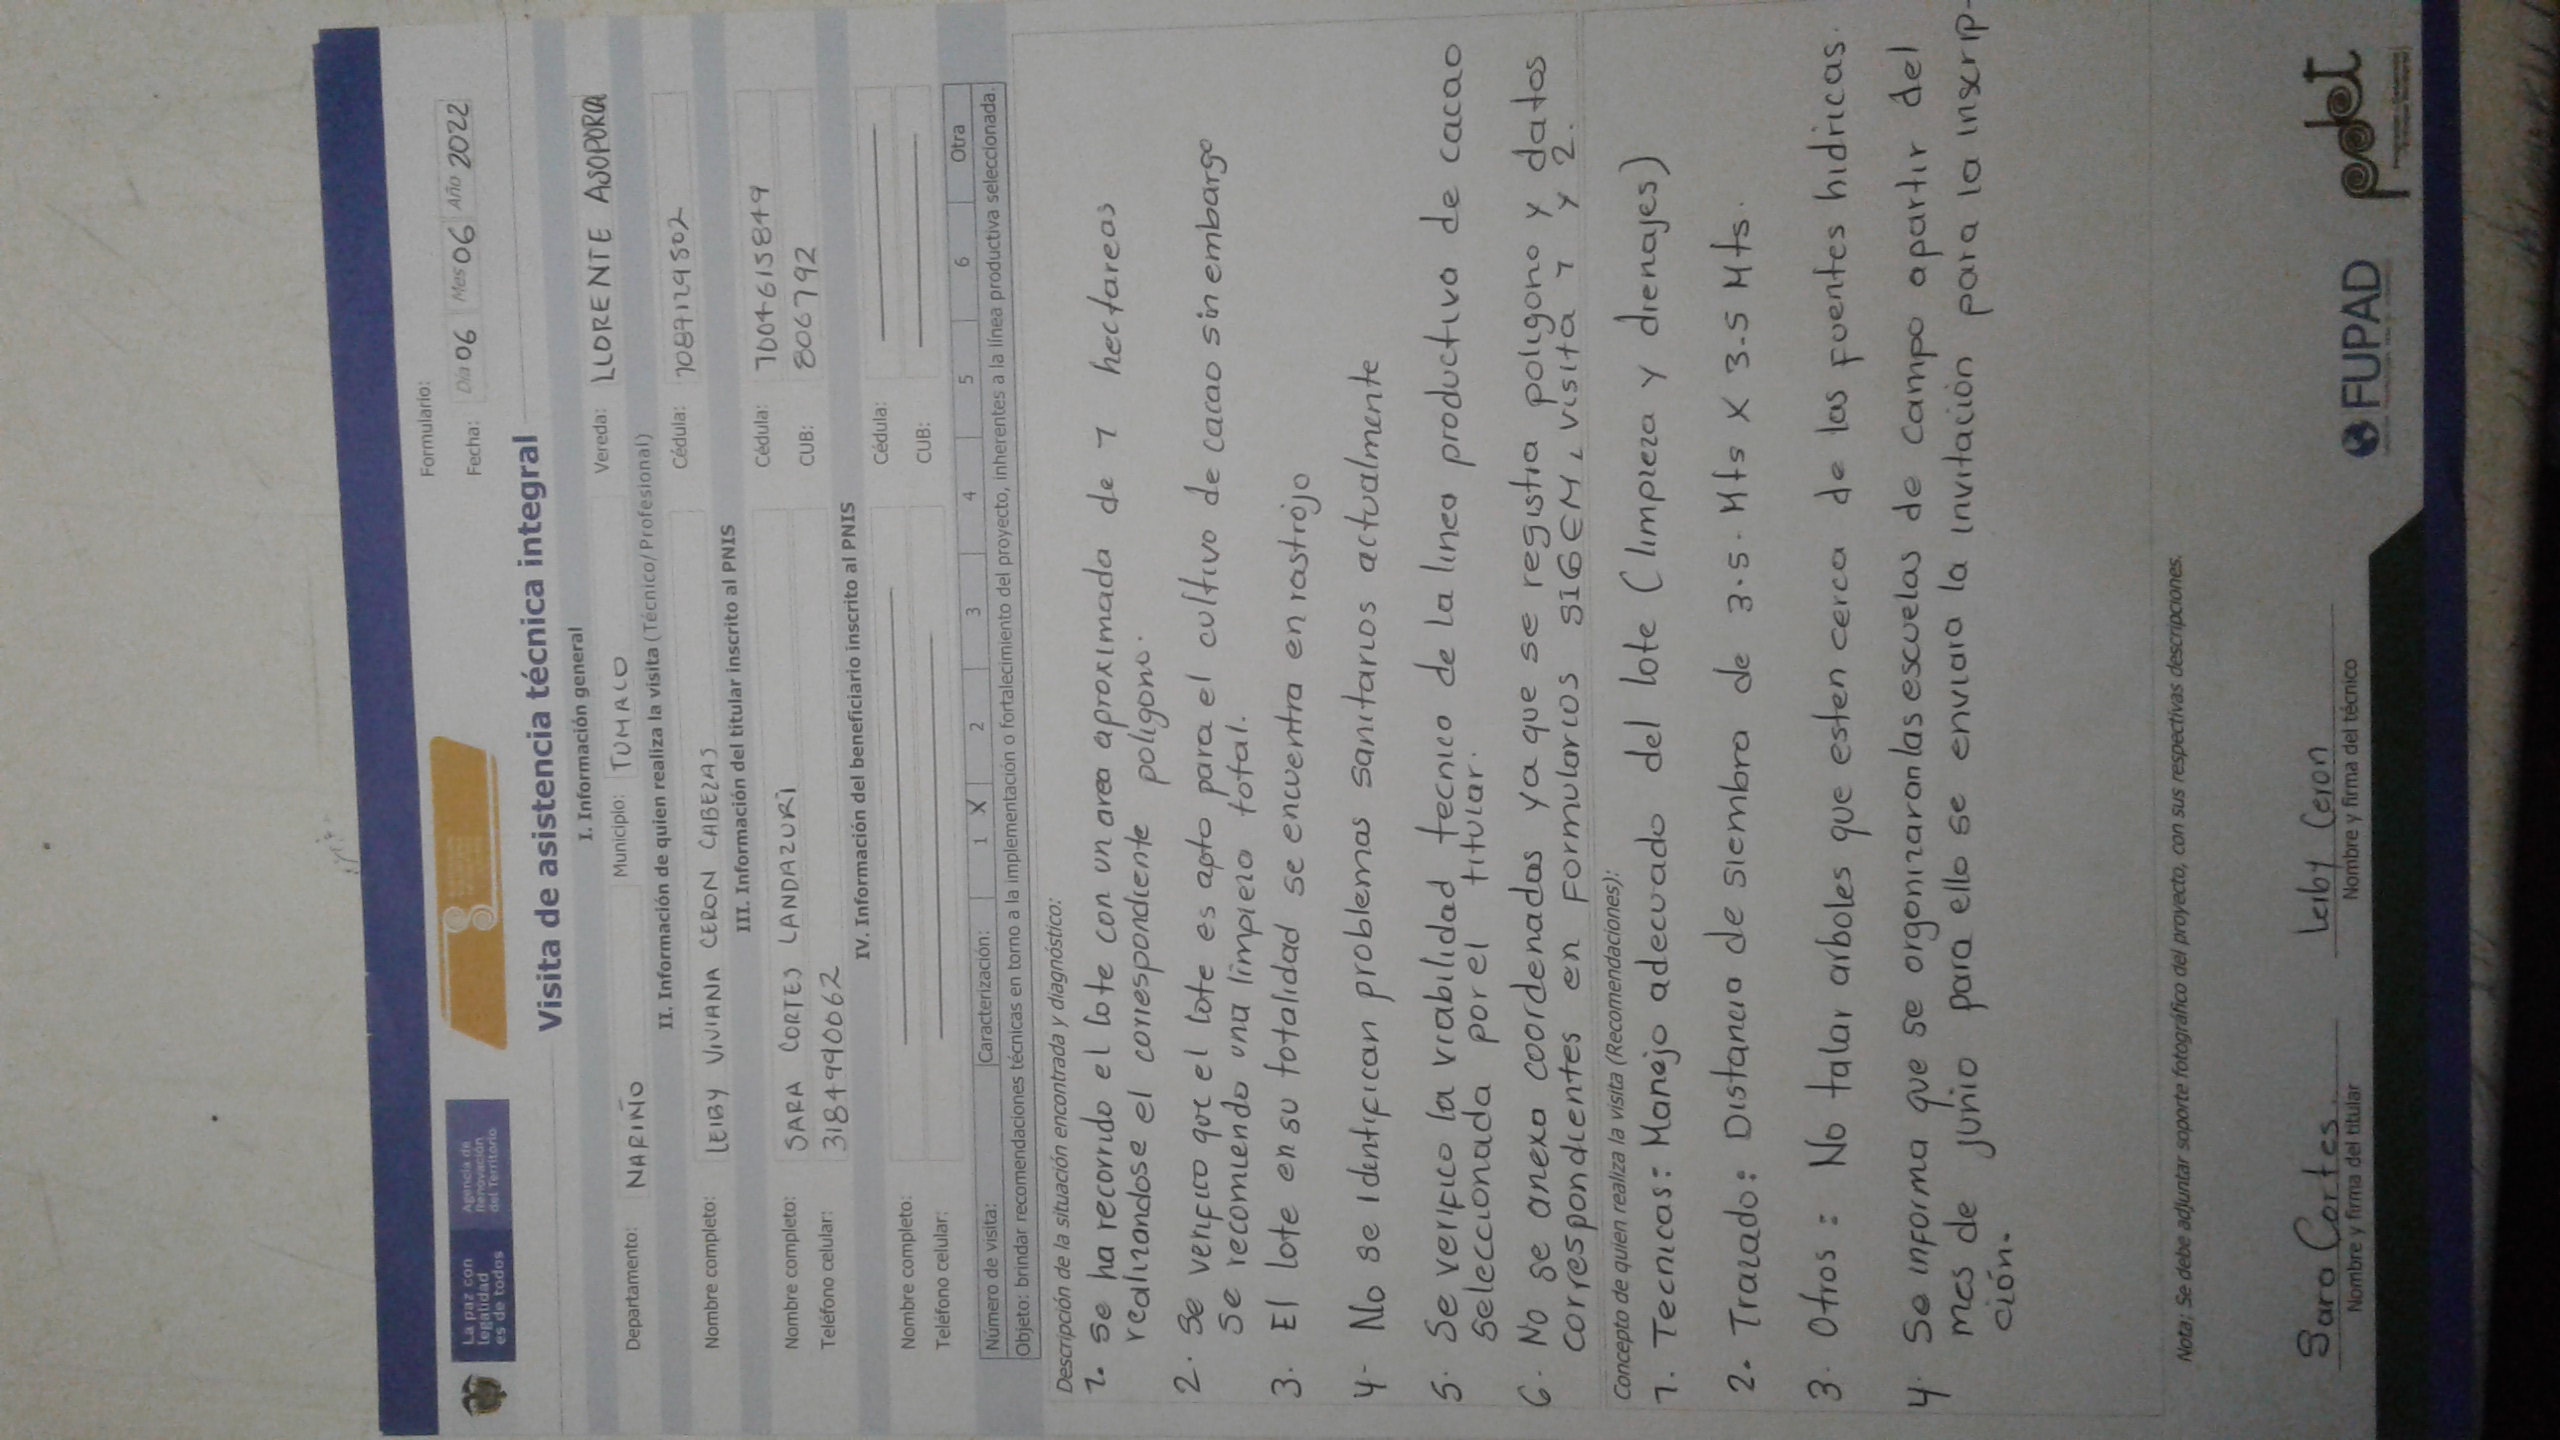 La paz con
legalidad
es de todos
Agencia de
Renovación
del Territorio
Formulario:
Fecha: Día 06 Mes 06 Año 2022
Visita de asistencia técnica integral
I. Información general
Departamento: NARIÑO Municipio: TUMACO Vereda: LLORENTE ASOPORCA
II. Información de quien realiza la visita (Técnico/Profesional)
Nombre completo: LEIBY VIVIANA CERON CABEZAS Cédula: 1087129502
III. Información del titular inscrito al PNIS
Nombre completo: SARA CORTES LANDAZURI Cédula: 1004615849
Teléfono celular: 3184990062 CUB: 806792
IV. Información del beneficiario inscrito al PNIS
Nombre completo: Cédula:
Teléfono celular: CUB:
Número de visita: Caracterización: 1 X 2 3 4 5 6 Otra
Objeto: brindar recomendaciones técnicas en torno a la implementación o fortalecimiento del proyecto, inherentes a la línea productiva seleccionada.
Descripción de la situación encontrada y diagnóstico:
1. Se ha recorrido el lote con un area aproximada de 1 hectareas
realizandose el correspondiente poligono.
2. Se verifico que el lote es apto para el cultivo de cacao sin embargo
se recomiendo una limpieza total.
3. El lote en su totalidad se encuentra en rastrojo
4- No se identifican problemas sanitarios actualmente
5. Se verifico la viabilidad tecnico de la linea productiva de cacao
seleccionada por el titular.
6. No se anexa coordenadas ya que se registra poligono y datos
correspondientes en formularios SIGEM, visita 1 y 2.
Concepto de quien realiza la visita (Recomendaciones):
1. Tecnicas: Manejo adecuado del lote (limpieza y drenajes)
2. Trazado: Distancia de siembra de 3.5. Mts X 3.5 Mts.
3. Otros: No talar arboles que esten cerca de las fuentes hidricas.
4. Se informa que se organizaran las escuelas de campo apartir del
mes de junio para ello se enviara la invitación para la inscrip-
ción.
Nota: Se debe adjuntar soporte fotográfico del proyecto, con sus respectivas descripciones.
Sara Cortes
Nombre y firma del titular
Leiby Ceron
Nombre y firma del técnico
FUPAD
pdet